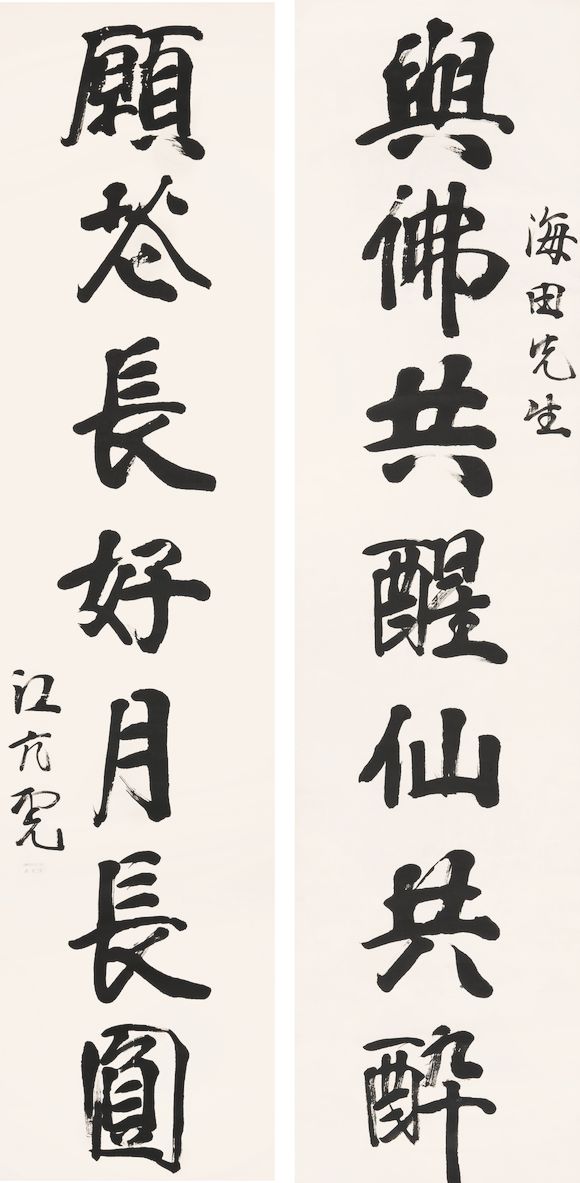 海田先生
與佛共醒仙共醉
願花長好月長圓
江亢虎